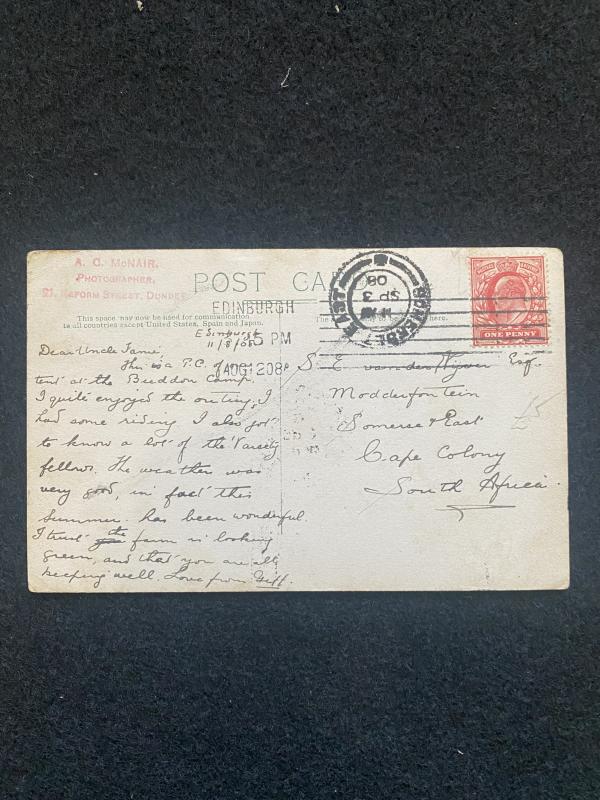 A. C. McNAIR,
PHOTOGRAPHER,
21, REFORM STREET, DUNDEE
POST CARD
This space may now be used for communication
to all countries except United States, Spain and Japan.
The
here.
EDINBURGH
5 PM
AUG 12 08
SOMERSET EAST
SP 3
08
ONE PENNY
Edinburgh
11/8/08
Dear Uncle Jamie
This is a P.C. of our
tent at the Buddon Camp.
I quite enjoyed the outing, I
had some riding. I also got
to know a lot of the 'Varsity
fellows. The weather was
very good, in fact this
summer has been wonderful.
I trust the farm is looking
green, and that you are all
keeping well. Love from
S. E. van der Esq.
Modderfontein
Somerset East
Cape Colony
South Africa.
£5